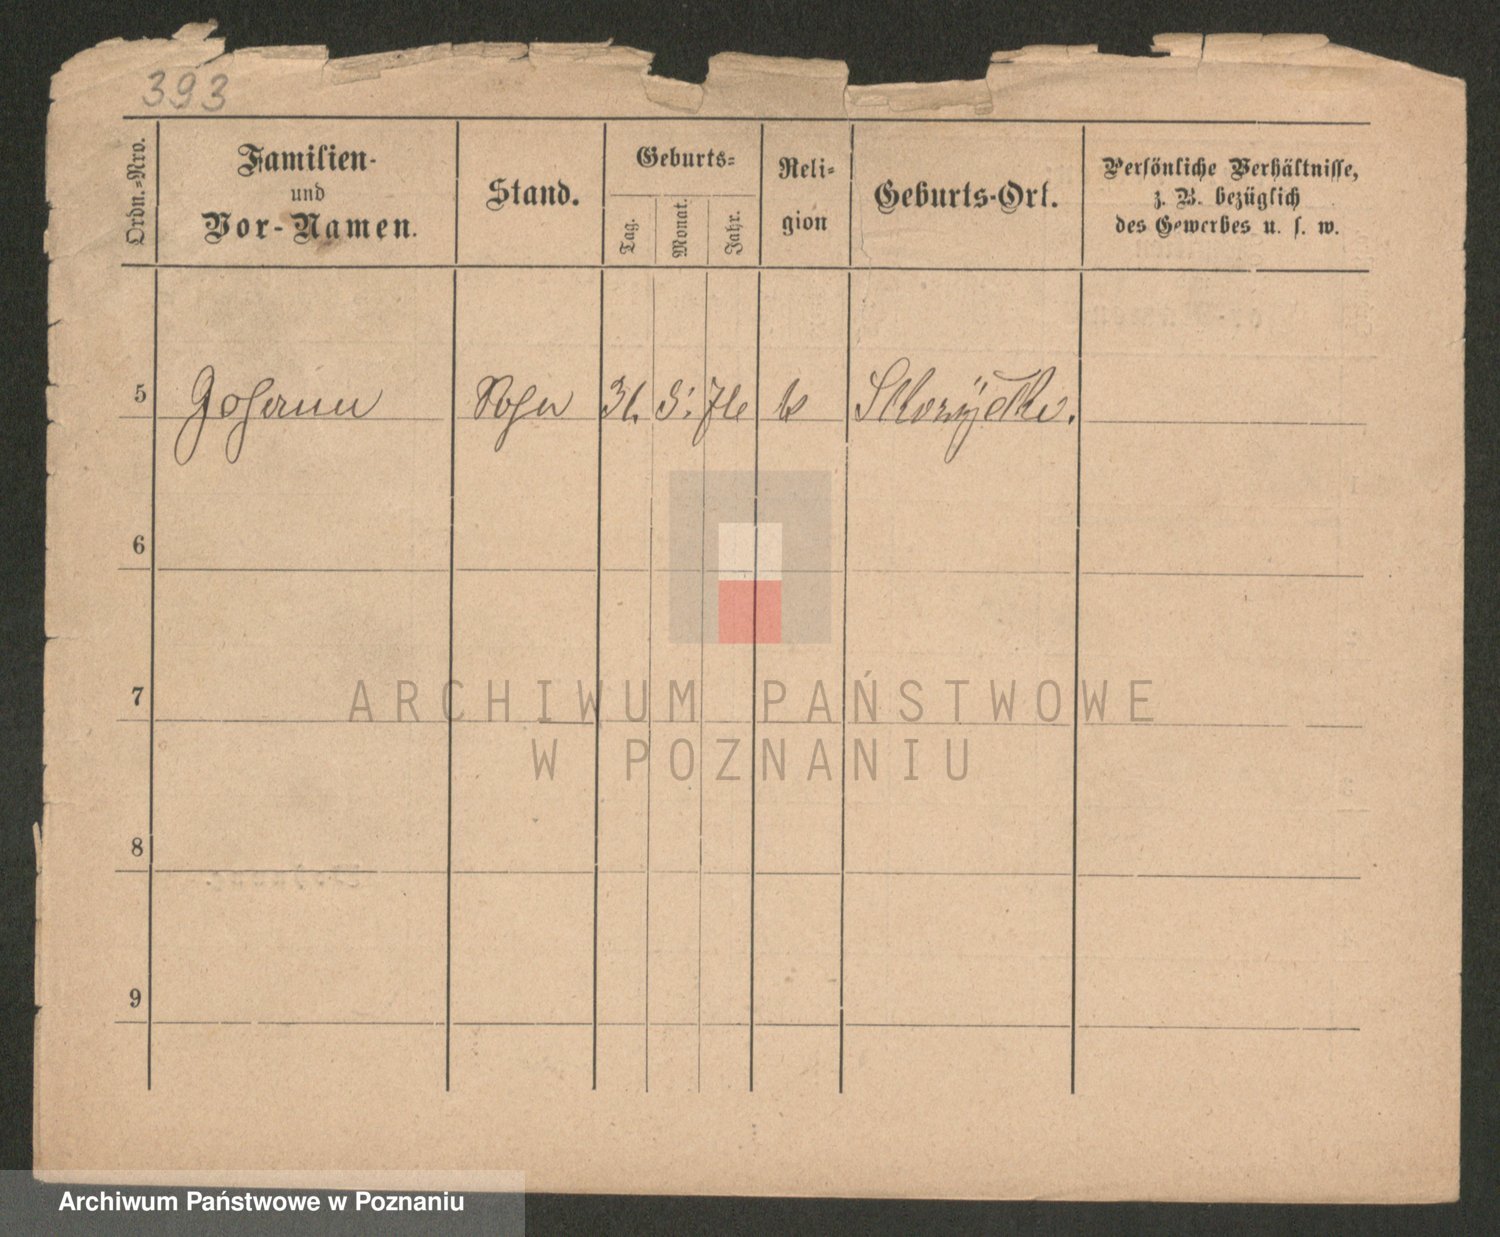 393
Ordn.-Nro.
Familien-
und
Vor-Namen.
Stand.
Geburts-
Tag.
Monat.
Jahr.
Reli-
gion
Geburts-Ort.
Persönliche Verhältnisse,
z. B. bezüglich
des Gewerbes u. s. w.
5 Johann Sohn
6
7
8
9
ARCHIWUM PAŃSTWOWE
W POZNANIU
Archiwum Państwowe w Poznaniu